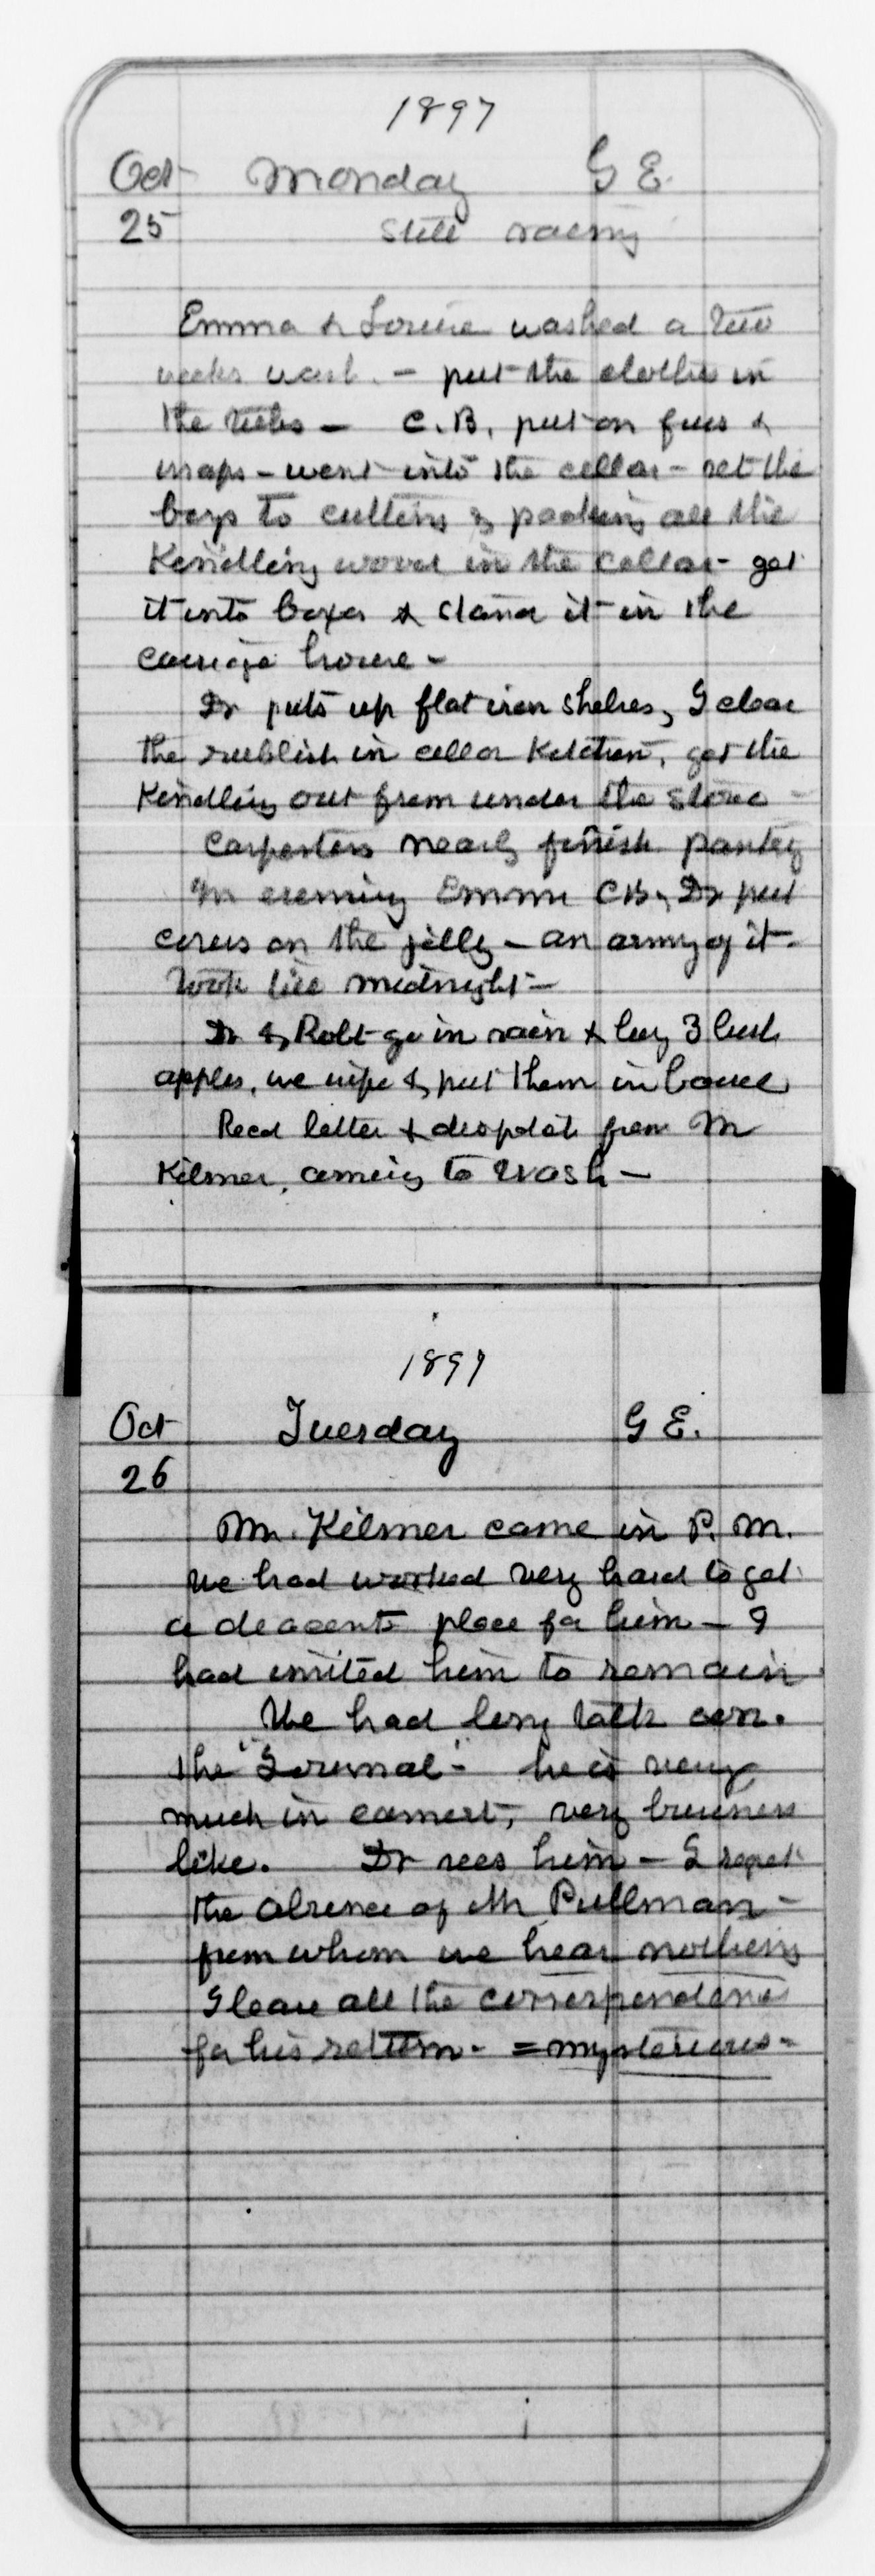 1897
Oct Monday G E.
25 Still raining
Emma & Louise washed a two
weeks wash. - put the clothes in
the tubs - C.B. put on furs &
wraps - went into the cellar - set the
boys to cutting & packing all the
Kindling wood in the cellar - get
it into boxes & stand it in the
carriage house -
Dr puts up flat iron shelves, I clear
the rubbish in cellar Kitchen, get the
Kindling out from under the stove -
Carpenters nearly finish pantry
In evening Emma CB, Dr put
covers on the jelly - an army of it.
Took till midnight -
Dr & Robt go in rain & buy 3 bush
apples, we wipe & put them in
Recd letter & from M
Kilmer, coming to Wash -
1897
Oct Tuesday G E.
26
Mr. Kilmer came in P. M.
We had worked very hard to get
a deacent place for him - I
had invited him to remain
We had long talk con.
the "Journal" - he is very
much in earnest, very business
like. Dr sees him - I regret
the absence of Mr Pullman -
from whom we hear nothing
I leave all the correspondence
for his return - = mysterious -